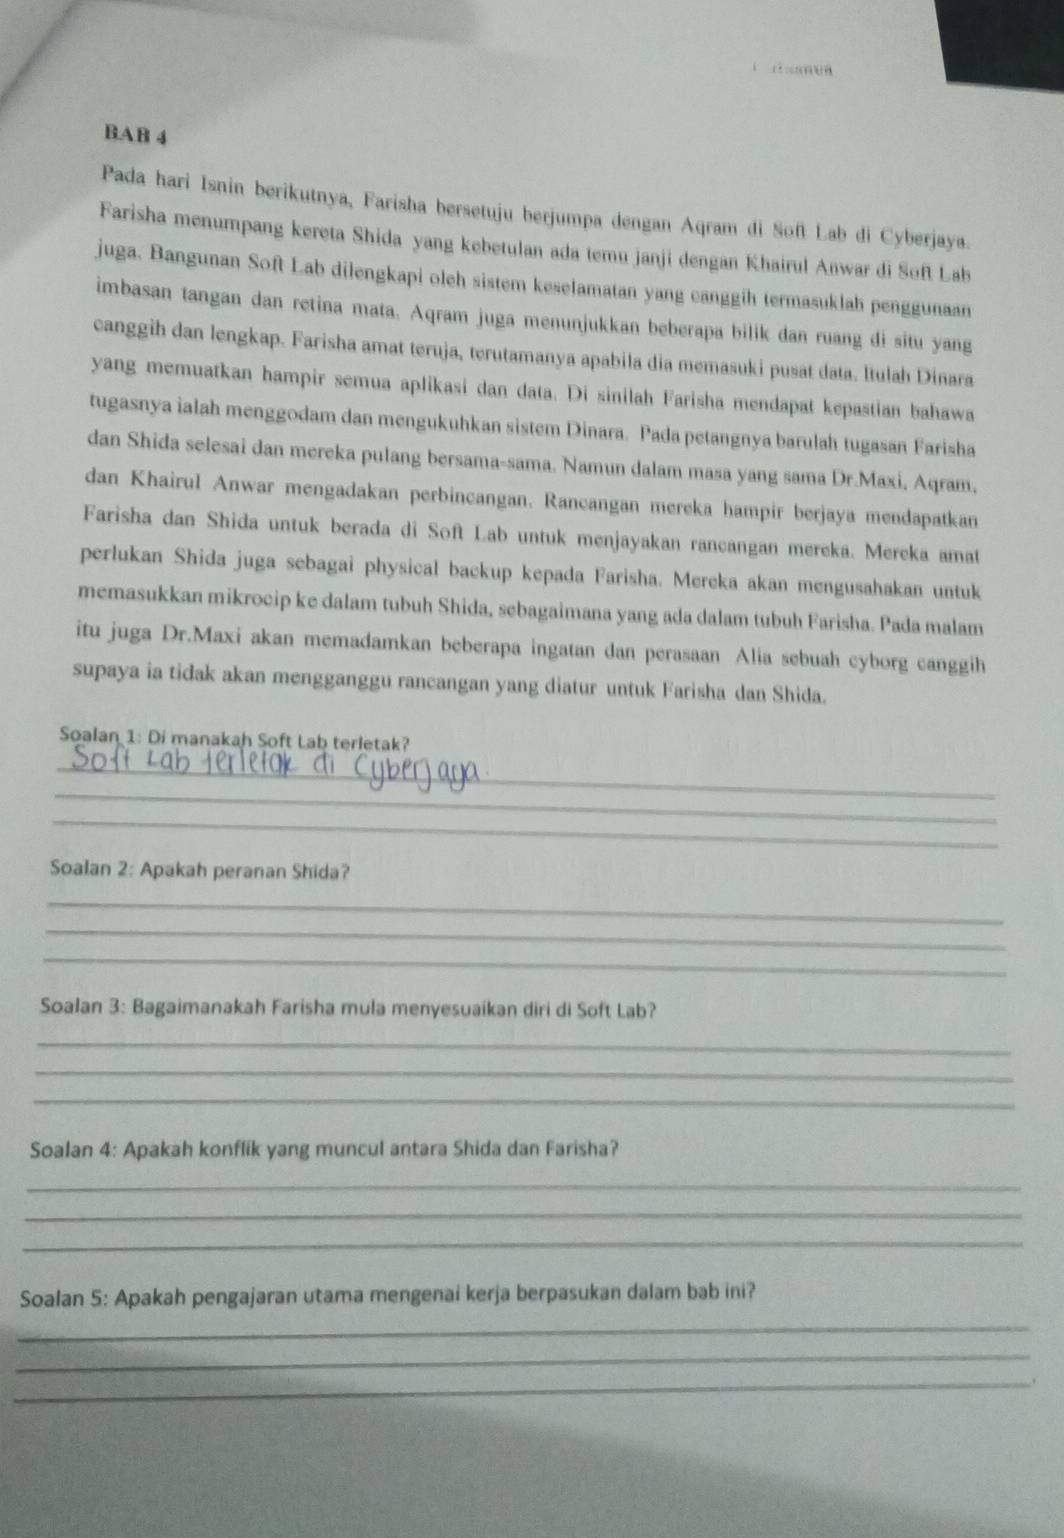 BAB 4
Pada hari Isnin berikutnya, Farisha bersetuju berjumpa dengan Aqram di Soft Lab di Cyberjaya.
Farisha menumpang kereta Shida yang kebetulan ada temu janji dengan Khairul Anwar di Soft Lab
juga. Bangunan Soft Lab dilengkapi oleh sistem keselamatan yang canggih termasuklah penggunaan
imbasan tangan dan retina mata. Aqram juga menunjukkan beberapa bilik dan ruang di situ yang
canggih dan lengkap. Farisha amat teruja, terutamanya apabila dia memasuki pusat data. Itulah Dinara
yang memuatkan hampir semua aplikasi dan data. Di sinilah Farisha mendapat kepastian bahawa
tugasnya ialah menggodam dan mengukuhkan sistem Dinara. Pada petangnya barulah tugasan Farisha
dan Shida selesai dan mereka pulang bersama-sama. Namun dalam masa yang sama Dr.Maxi, Aqram,
dan Khairul Anwar mengadakan perbincangan. Rancangan mereka hampir berjaya mendapatkan
Farisha dan Shida untuk berada di Soft Lab untuk menjayakan rancangan mereka. Mereka amat
perlukan Shida juga sebagai physical backup kepada Farisha. Mereka akan mengusahakan untuk
memasukkan mikrocip ke dalam tubuh Shida, sebagaimana yang ada dalam tubuh Farisha. Pada malam
itu juga Dr.Maxi akan memadamkan beberapa ingatan dan perasaan Alia sebuah cyborg canggih
supaya ia tidak akan mengganggu rancangan yang diatur untuk Farisha dan Shida.
Soalan 1: Di manakah Soft Lab terletak?
Soft Lab terletak di Cyberjaya.
Soalan 2: Apakah peranan Shida?
Soalan 3: Bagaimanakah Farisha mula menyesuaikan diri di Soft Lab?
Soalan 4: Apakah konflik yang muncul antara Shida dan Farisha?
Soalan 5: Apakah pengajaran utama mengenai kerja berpasukan dalam bab ini?